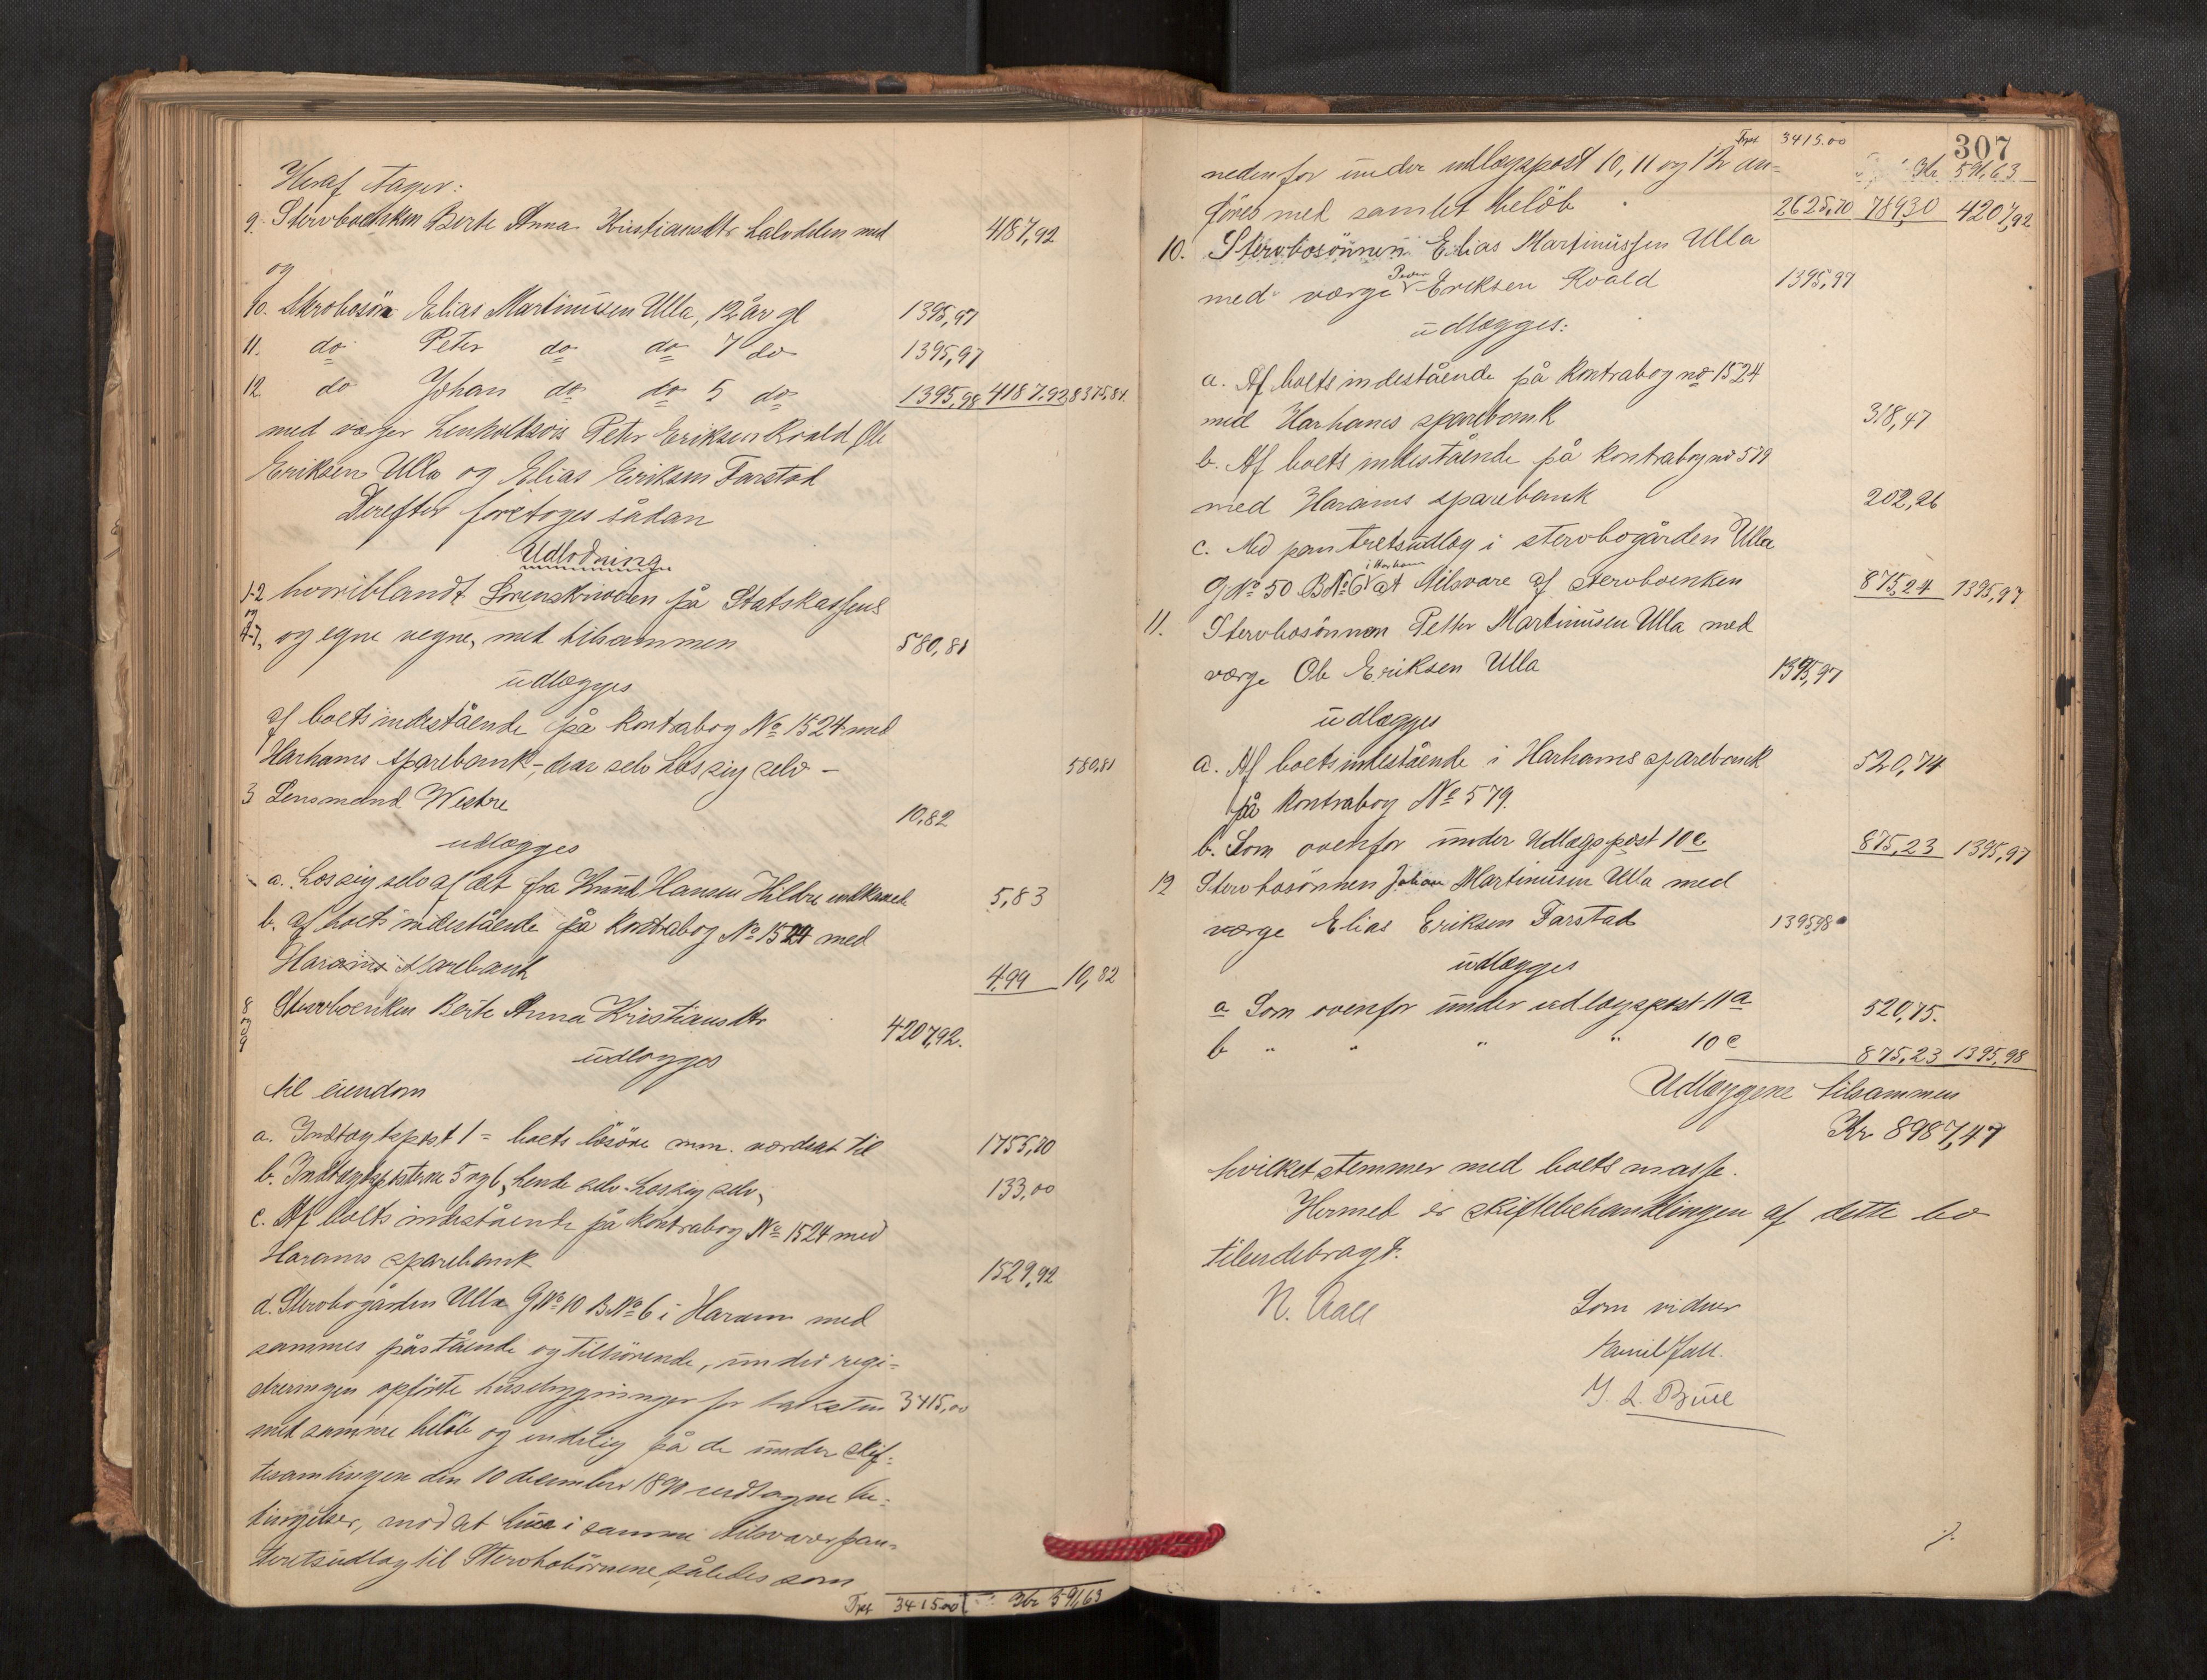 Heraf tager:
9. Stervboenken Berte Anna Kristiansdtr halvdelen med 4187,92
og
10. Stervbosön Elias Martinussen Ulla, 12 år gl 1395,97
11. do Peter do do 7 do 1395,97
12 do Johan do do 5 do 1395,98 4187,92 8375,84.
med værger henholdsvis Peter Eriksen Roald, Ole
Eriksen Ulla og Elias Eriksen Farstad
Derefter foretoges sådan
Udlodning
1-2 hvoriblandt Sorenskriveren på Statskassens
og 4-7, og egne vegne, med tilsammen 580,81
udlægges
af boets indestående på kontrabog No 1524 med
Harhams sparebank, hos sig selv – 580,81
3 Lensmand Westre 10,82
udlægges
a. hos sig selv af det fra Knud Hansen Hildre indkomne 5,83
b. af boets indestående på kontrabog No 1524 med
Harams sparebank 4,99 10,82
8 og 9 Stervboenken Berte Anna Kristiansdtr 4207,92.
udlægges
til eiendom
a. Indtægtspost 1 = boets lösöre m.m. værderet til 1755,70
b. Indtægtsposterne 5 og 6, hende selv hos sig selv, 133,00
c. Af boets indestående på kontrabog No 1524 med
Harams sparebank 1529,92
d. Stervbogården Ulla GNo 10 BNo 6 i Haram med
sammes påstående og tilhörende, under regi-
streringen opförte husebygninger for taksten 3415,00
med samme belöb og endelig på de under skif-
tesamlingen den 10 desember 1890 vedtagne be-
tingelser, mod at hun i samme tilsvarer pan-
teretsudlæg til Stervbobörnene, således som
Trpt 3415,00 Kr 591,63
307
Trpt 3415.00 Kr 591,63
nedenfor under udlægspost 10, 11 og 12 an-
föres med samlet belöb 2625,70 789,30 4207,92
10. Stervbosönnen Elias Martinussen Ulla
med værge Peder Eriksen Roald 1395,97
udlægges:
a. Af boets indestående på kontrabog no 1524
med Harhams sparebank 318,47
b. Af boets indestående på kontrabog no 579
med Harams sparebank 202,26
c. Med panteretsudlæg i stervbogården Ulla
GNo 50 BNo 6 i Harham at tilsvare af stervboenken 875,24 1395,97
11. Stervbosönnen Petter Martinussen Ulla med
værge Ole Eriksen Ulla 1395,97
udlægges
a. Af boets indestående i Harhams sparebank 520,74
på kontrabog No 579.
b. Som ovenfor under Udlægspost 10c 875,23 1395,97
12 Stervbosönnen Johan Martinussen Ulla med
værge Elias Eriksen Farstad 1395,98
udlægges
a Som ovenfor under udlægspost 11a 520,75.
b " " " " 10c 875,23 1395,98
Udlæggene tilsammen
Kr 8987,47
hvilket stemmer med boets masse.
Hermed er skiftebehandlingen af dette bo
tilendebragt.
N. Aall Som vidner
Emil Fall.
J. L. Buee